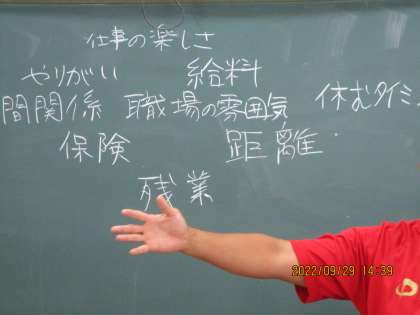 仕事の楽しさ
やりがい 給料
間関係 職場の雰囲気 休むタイミ
保険 距離
残業
2022/09/29 14:39